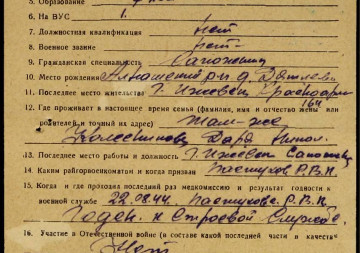 5. Образование
6. На ВУС 1.
7. Должностная квалификация нет
8. Военное звание нет
9. Гражданская специальность Сапожник
10. Место рождения Алнашский р-н д.
11. Последнее место жительства г. Ижевск
164
12. Где проживает в настоящее время семья (фамилия, имя и отчество жены или
родителей и точный их адрес) Там-же
Дарья Никол.
13. Последнее место работы и должность г. Ижевск Сапожник
14. Каким райгорвоенкоматом и когда призван Пастухов. Р.В.К.
15. Когда и где проходил последний раз медкомиссию и результат годности к
военной службе 22.08.44. Пастухов. Р.В.К.
Годен к строевой службе.
16. Участие в Отечественной войне (в составе какой последней части и качестве
Нет